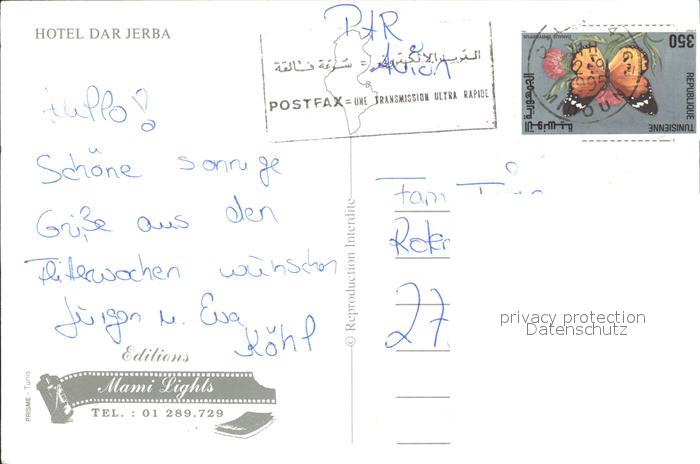 HOTEL DAR JERBA
PAR
Avion
سرعة فائقة =
POSTFAX = UNE TRANSMISSION ULTRA RAPIDE
350
REPUBLIQUE
TUNISIENNE
Hallo!
Schöne sonnige
Grüße aus den
Flitterwochen wünschen
Jürgen u. Eva
Köhl
© Reproduction Interdite
Fam
27
privacy protection
Datenschutz
Editions
Mami Lights
TEL. : 01 289.729
PRISME - Tunis